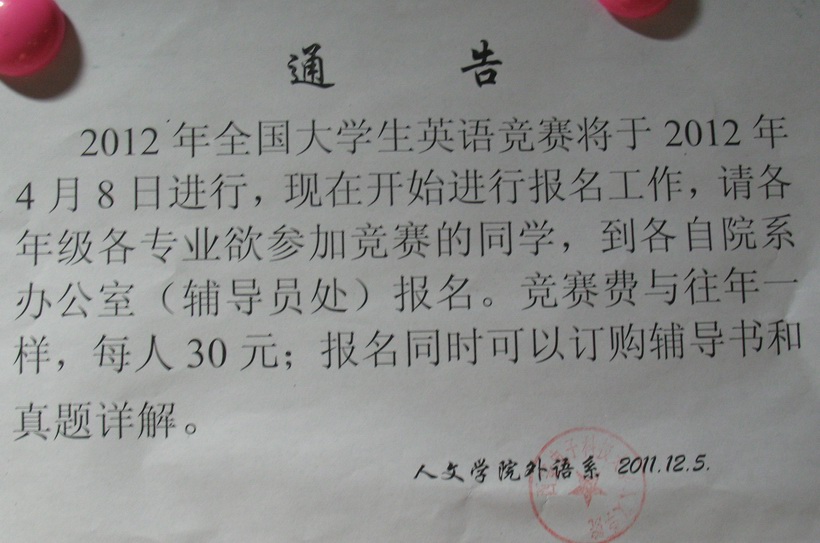 通 告
2012 年全国大学生英语竞赛将于 2012 年
4 月 8 日进行，现在开始进行报名工作，请各
年级各专业欲参加竞赛的同学，到各自院系
办公室（辅导员处）报名。竞赛费与往年一
样，每人 30 元；报名同时可以订购辅导书和
真题详解。
人文学院外语系 2011.12.5.